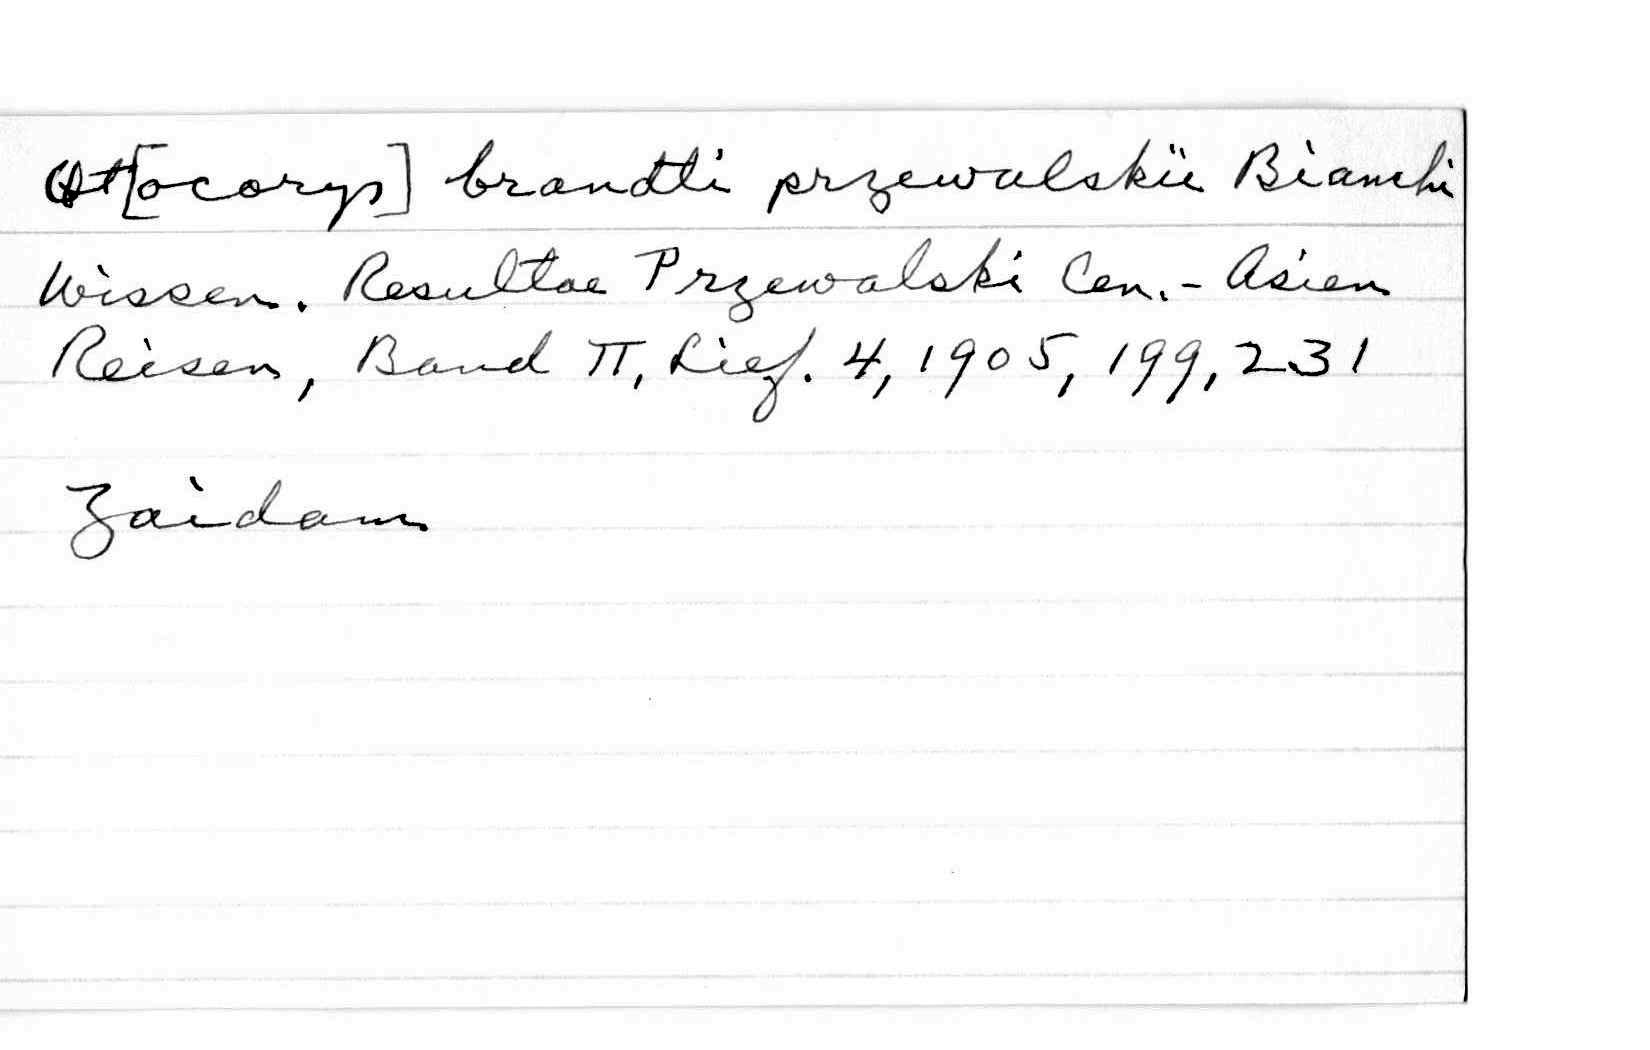 Ot[ocorys] brandti przewalskii Bianchi
Wissen. Resultae Przewalski Cen.- Asien
Reisen, Band II, Lief. 4, 1905, 199, 231
Zaidam